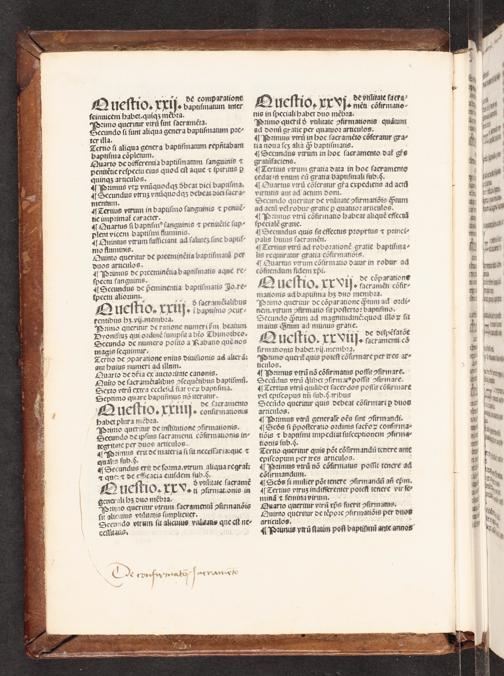 Questio. xxij. de comparatione
baptismatum inter
seinvicem habet quīqz mēbra.
Primo queritur vtrū sint sacramēta.
Secundo si sunt aliqua genera baptismatum pre-
ter illa.
Tertio si aliqua genera baptismatum
baptisma cōpletum.
Quarto de differentia baptismatum sanguinis ⁊
penitētie respectu eius quod est aque ⁊ spiritus p
quinqz articulos.
¶ Primus vtrū vnūquodqz debeat dici baptisma.
¶ Secundus vtrūz vnūquodqz debeat dici sacra-
mentum.
¶ Tertius vtrum in baptismo sanguinis ⁊ penitē-
tie imprimat̄ caracter.
¶ Quartus si baptism⁹ sanguinis ⁊ penitētie sup-
plent vicem baptismi fluminis.
¶ Quintus vtrum sufficiant ad salutē sine baptis-
mo fluminis.
Quinto queritur de preeminētia baptismatū per
duos articulos.
¶ Primus de preeminētia baptismatis aque re-
spectu sanguinis.
¶ Secundus de p̄eminentia baptismatis Jo. re-
spectu aliorum.
Questio. xxiij. d̄ sacramētalibus
ī baptismo ↄcur-
rentibus hz. vij. membra.
Primo queritur de ratione numeri
Dionysiuz qui
Secundo de numero posito a Rabano
magis sequimur.
Tertio de ↄparatione vnius diuisionis ad alterā:
siue huius numeri ad illum.
Quarto de dr̄ia ex aucto itate canonis.
Quīto de sacramētalibus p̄cedētibus baptismū.
Sexto vtrū extra ecclesiā fiat vez baptisma.
Septimo quare baptismus nō iteratur.
Questio. xxiiij. de sacramento
confirmationis
habet plura mēbra.
Primo queritur de institutione ↄfirmationis.
Secundo de ipsius sacramenti cōfirmationis in-
tegritate per duos articulos.
¶ Primus erit de materia si sit necessaria: que ⁊
qualis sub. §.
¶ Secundus erit de forma. vtrum aliqua
⁊ que: ⁊ de efficacia eiusdem sub. §.
Questio. xxv. d̄ vtilitate sacramē
ti ↄfirmationis in
generali hz duo mēbra.
Primo queritur vtrum sacramentū ↄfirmationis
sit alicuius vtilitatis simpliciter.
Secundo vtrum sit alicuius vtilitatis que est ne-
cessitatis.
Questio. xxvj. de vtilitate sacra-
mēti cōfirmatio-
nis in speciali habet duo mēbra.
Primo querit̄ d̄ vtilitate ↄfirmationis quātum
ad donū gratie per quatuor articulos.
¶ Primus vtrū in hoc sacramēto cōferatur gra-
tia noua seqz alia q̄ baptismatis.
¶ Secundus vtrum in hoc sacramento dat̄ gr̄a
gratūfaciens.
¶ Tertius vtrum gratia data in hoc sacramento
cedat in vnum cū gratia baptismali sub. §.
¶ Quartus vtrū cōferatur gr̄a expediens ad actū
virtutis aut ad actum doni.
Secundo queritur de vtilitate ↄfirmatiōis q̄ntum
ad actū vel robur gratie p quatuor articulos.
¶ Primus vtrū cōfirmatio habeat aliquē effectū
specialē gratie.
¶ Secundus quis sit effectus proprius ⁊ princi-
palis huius sacramēti.
¶ Tertius vtrū ad roborationē gratie baptisma-
lis requiratur gratia cōfirmationis.
¶ Quartus vtrum cōfirmatio datur in robur ad
cōfitendum fidem xp̄i.
Questio. xxvij. de cōparatione
sacramēti cōfir-
mationis ad baptisma hz duo membra.
Primo queritur de cōparatione q̄ntum ad ordi-
nem. vtrum ↄfirmatio sit posterior baptismo.
Secundo q̄ntum ad magnitudinē: quod illorz sit
maius q̄ntum ad munus gratie.
Questio. xxviij. de dispēsatōe
sacramenti cō
firmationis habet. vij. membra.
Primo querit̄ quis potest cōfirmare per tres ar-
ticulos.
¶ Primus vtrū nō cōfirmatus possit ↄfirmare.
Secundus vtrū q̄libet ↄfirmatus possit ↄfirmare.
¶ Tertius vtrū quilibet sacerdos possit cōfirmare
vel episcopus tm̄ sub. §. tribus
Secūdo queritur quis debeat cōfirmari p duos
articulos.
¶ Primus vtrū generalr̄ oēs sint ↄfirmandi.
¶ Secūs si p̄posteratio ordinis sacrorz confirma-
tiōis ⁊ baptismi impediat susceptionem ↄfirma-
tionis sub. §.
Tertio queritur quis pōt cōfirmandū tenere ante
episcopum per tres articulos.
¶ Primus vtrū nō cōfirmatus possit tenere ad
cōfirmandum.
¶ Secūs si mulier pōt tenere ↄfirmandū añ ep̄m.
¶ Tertius vtrum indifferenter possit tenere vir fe-
minā ⁊ femina virum.
Quarto queritur vtrū xp̄s fuerit ↄfirmatus.
Quinto queritur de tēpore ↄfirmatiōis per duos
articulos.
¶ Primus vtrū statim post baptismū ante annos
De confirmatōis sacramēto